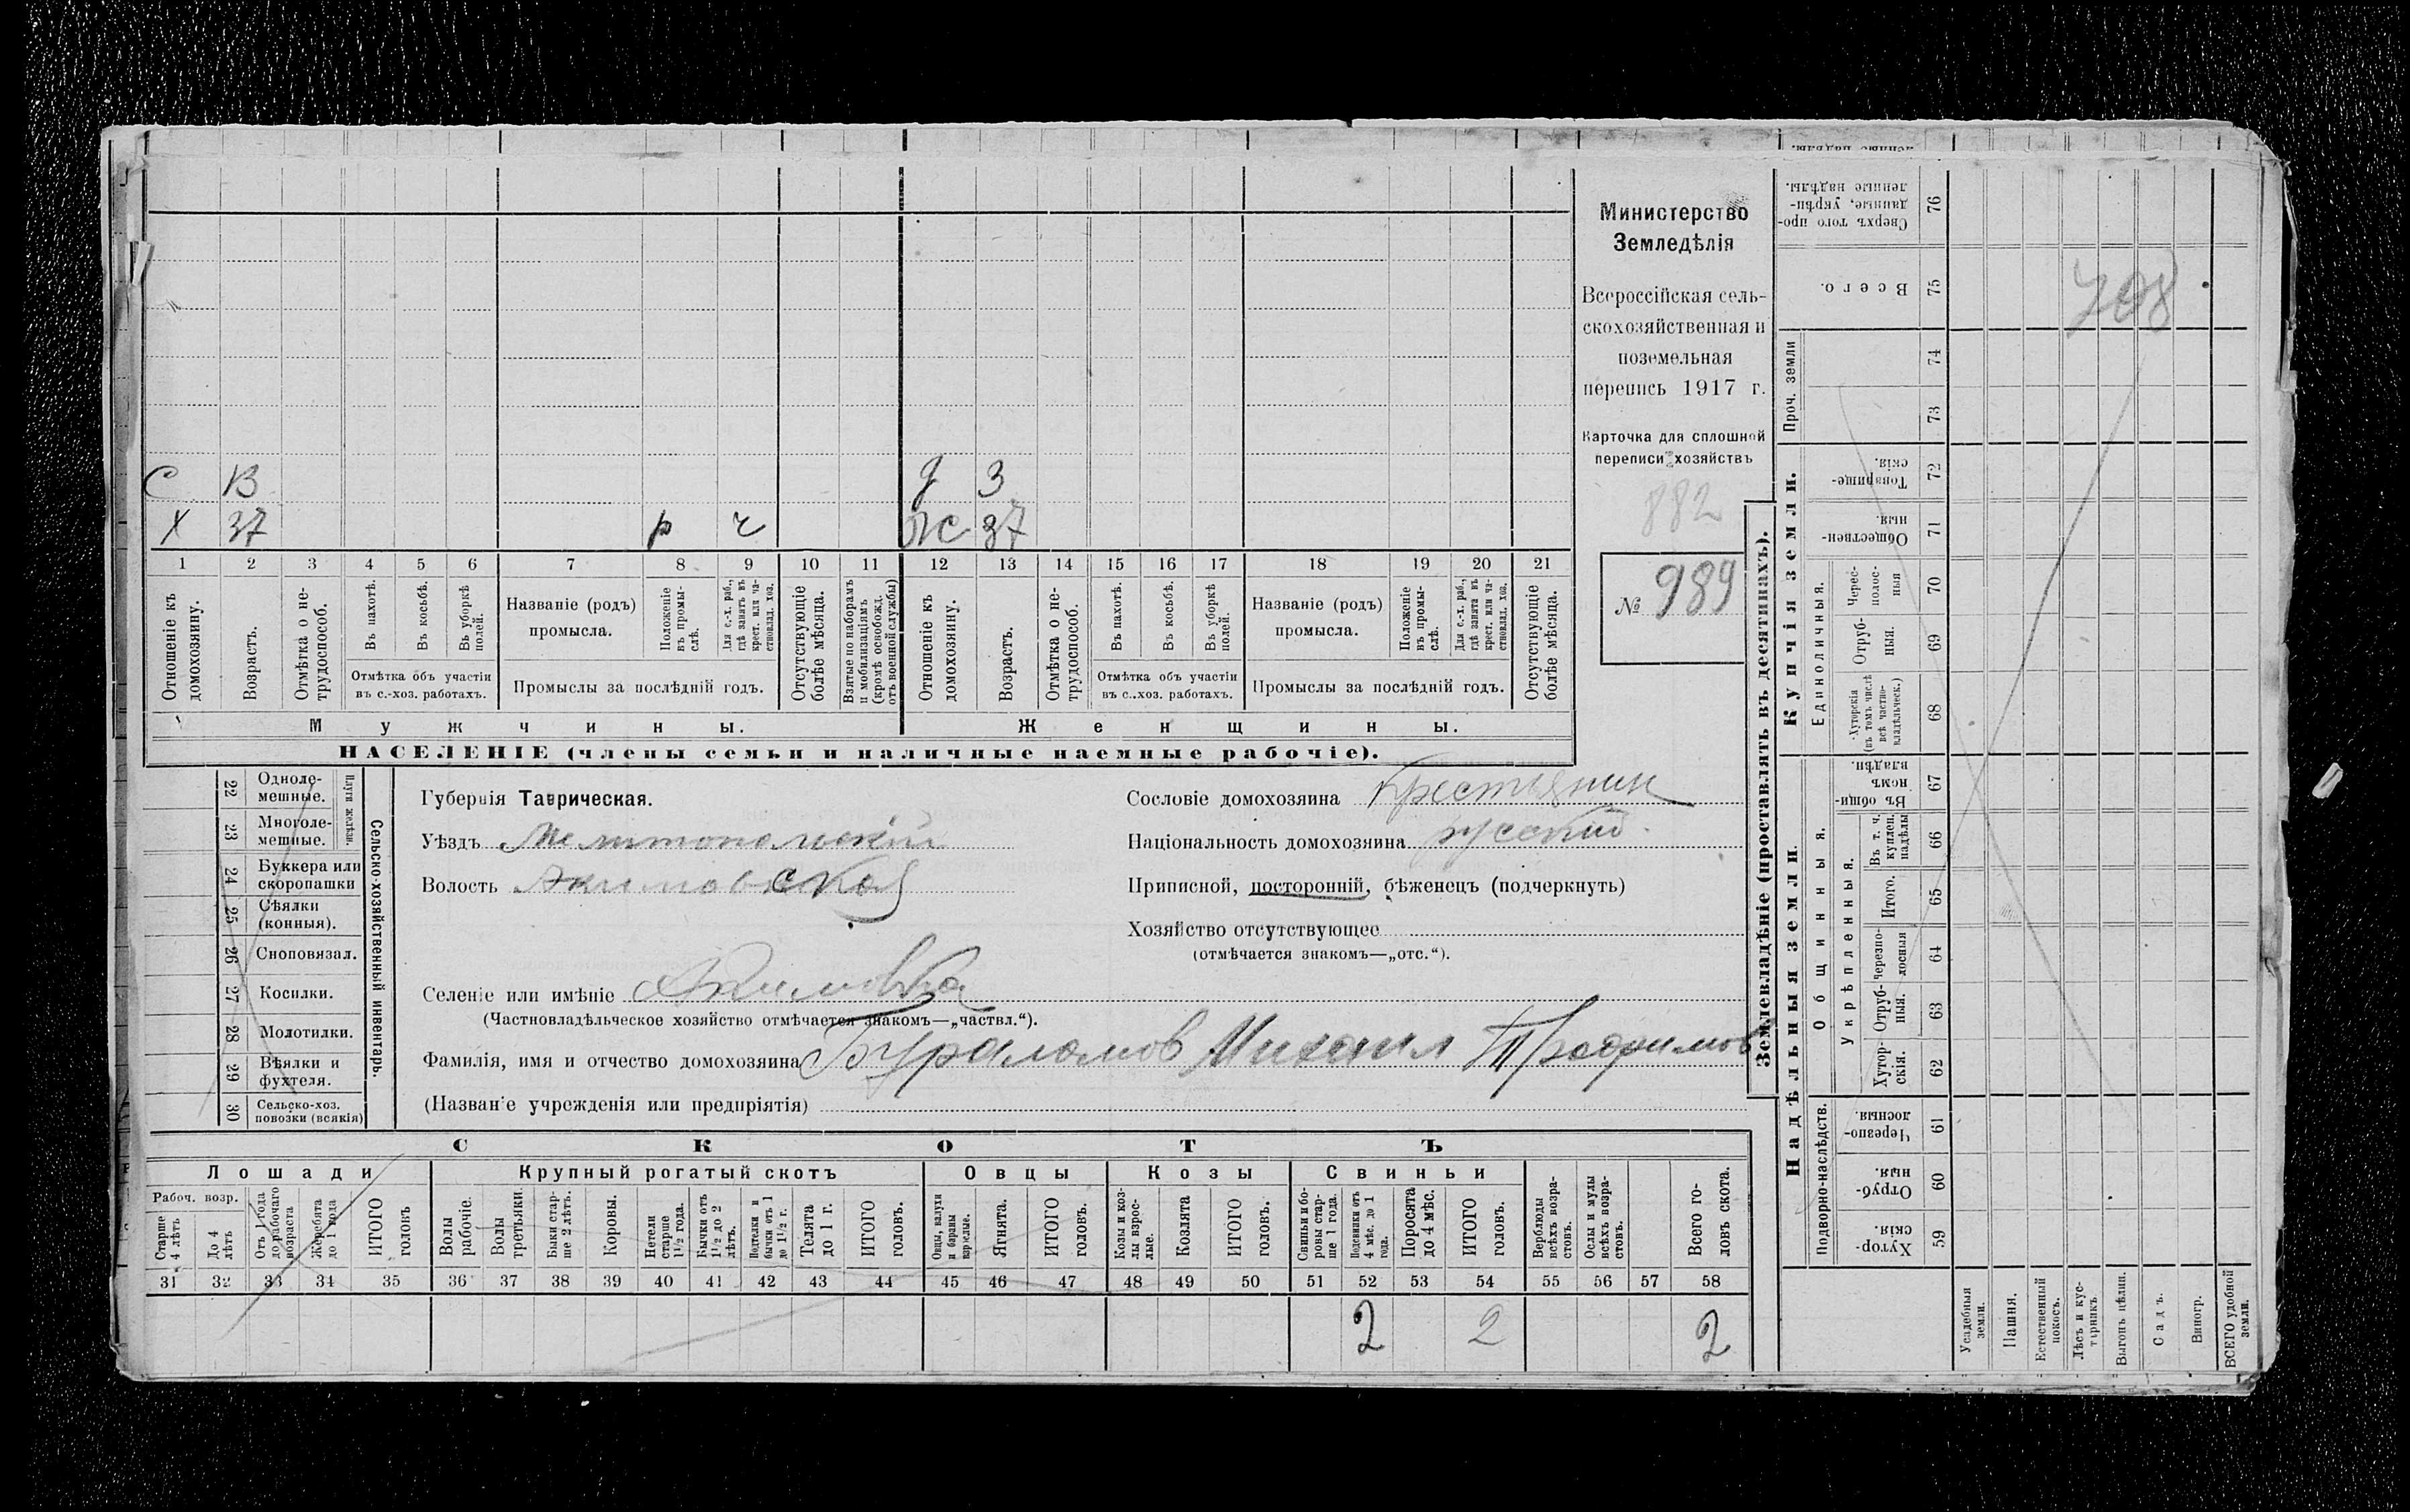 Министерство
Земледѣлія
Всероссійская сель-
скохозяйственная и
поземельная
перепись 1917 г.
Карточка для сплошной
переписи хозяйствъ
882
№ 989
С В Д 3
Х 37 р ч Ж 37
1 2 3 4 5 6 7 8 9 10 11 12 13 14 15 16 17 18 19 20 21
Отношеніе къ домохозяину.
Возрастъ.
Отмѣтка о не-трудоспособ.
Въ пахотѣ.
Въ косьбѣ.
Въ уборкѣ полей.
Отмѣтка объ участіи
въ с.-хоз. работахъ.
Названіе (родъ)
промысла.
Положеніе въ промы-слѣ.
Для с.-х. раб., гдѣ занятъ въ крест. или ча-стновлад. хоз.
Промыслы за послѣдній годъ.
Отсутствующіе болѣе мѣсяца.
Взятые по наборамъ и мобилизаціямъ (кромѣ освобожд. отъ военной службы)
Отношеніе къ домохозяину.
Возрастъ.
Отмѣтка о не-трудоспособ.
Въ пахотѣ.
Въ косьбѣ.
Въ уборкѣ полей.
Отмѣтка объ участіи
въ с..хоз. работахъ.
Названіе (родъ)
промысла.
Положеніе въ промы-слѣ.
Для с.-х. раб., гдѣ занята въ крест. или ча-стновлад. хоз.
Промыслы за послѣдній годъ.
Отсутствующіе болѣе мѣсяца.
Мужчины. Женщины.
НАСЕЛЕНІЕ (члены семьи и наличные наемные рабочіе).
Сельско-хозяйственный инвентарь.
Плуги желѣзн.
22 Одноле-мешные.
23 Многоле-мешные.
24 Буккера или скоропашки
25 Сѣялки (конныя).
26 Сноповязал.
27 Косилки.
28 Молотилки.
29 Вѣялки и фухтеля.
30 Сельско-хоз. повозки (всякія)
Губернія Таврическая.
Уѣздъ Мелитопольскій
Волость Акимовская
Селеніе или имѣніе Акимовка
(Частновладѣльческое хозяйство отмѣчается знакомъ—„частвл.“).
Сословіе домохозяина Крестьянин
Національность домохозяина русский
Приписной, посторонній, бѣженецъ (подчеркнуть)
Хозяйство отсутствующее
(отмѣчается знакомъ—„отс.“).
Фамилія, имя и отчество домохозяина Бураломов Михаил Трофимов
(Названіе учрежденія или предпріятія)
СКОТЪ
Лошади Крупный рогатый скотъ Овцы Козы Свиньи
Рабоч. возр.
Старше 4 лѣтъ
До 4 лѣтъ
Отъ 1 года до рабочаго возраста
Жеребята до 1 года
ИТОГО головъ
Волы рабочіе.
Волы третьяки.
Быки стар-ше 2 лѣтъ.
Коровы.
Нетели старше 1½ года.
Бычки отъ 1½ до 2 лѣтъ.
Подтелки и бычки отъ 1 до 1½ г.
Телята до 1 г.
ИТОГО головъ.
Овцы, валухи и бараны взрослые.
Ягнята.
ИТОГО головъ.
Козы и коз-лы взрос-лые.
Козлята
ИТОГО головъ.
Свиньи и бо-ровы стар-ше 1 года.
Подсвинки отъ 4 мѣс. до 1 года.
Поросята до 4 мѣс.
ИТОГО головъ.
Верблюды всѣхъ возра-стовъ.
Ослы и мулы всѣхъ возра-стовъ.
Всего го-ловъ скота.
31 32 33 34 35 36 37 38 39 40 41 42 43 44 45 46 47 48 49 50 51 52 53 54 55 56 57 58
2 2 2
Землевладѣніе (проставлять въ десятинахъ).
Надѣльныя земли.
Купчія земли.
Проч. земли
Подворно-наслѣдств.
Общинныя.
Укрѣпленныя.
Единоличныя.
Сверхъ того про-данные, укрѣп-ленные надѣлы. 76
Всего. 75
74
73
Товарище-скія. 72
Обществен-ныя. 71
Черес-полос-ныя 70
Отруб-ныя. 69
Хуторскія (въ томъ числѣ всѣ частно-владѣльческ.) 68
Въ общин-номъ владѣн. 67
Въ т. ч. куплен. надѣлы 66
Итого. 65
Черезпо-лосныя 64
Отруб-ныя. 63
Хутор-скія. 62
Черезпо-лосныя. 61
Отруб-ныя. 60
Хутор-скія. 59
Усадебныя земли.
Пашня.
Естественный покосъ.
Лѣсъ и кус-тарникъ
Выгонъ цѣлин.
Садъ.
Виногр.
ВСЕГО удобной земли.
708